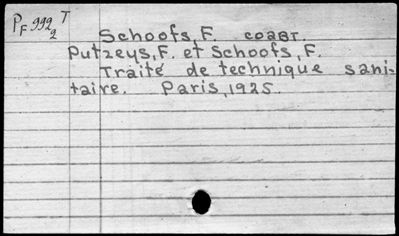 PF 999 T
2
Schoofs, F. соавт.
Putzeys, F. et Schoofs, F.
Traité de technique sani-
taire. Paris, 1925.